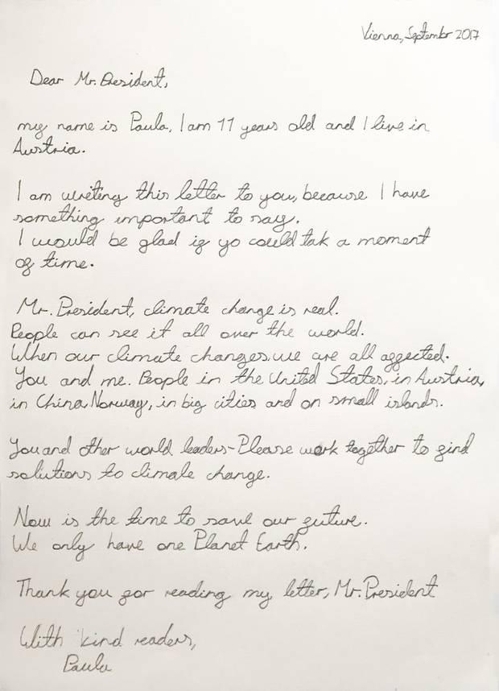 Vienna, Septembr 2017
Dear Mr. President,
my name is Paula, I am 11 years old and I live in
Austria.
I am writing this letter to you, because I have
something important to say.
I would be glad if yo could tak a moment
of time.
Mr. President, climate change is real.
People can see it all over the world.
When our climate changes, we are all affected.
You and me. People in the United States, in Austria,
in China, Norway, in big cities and on small islands.
You and other world leaders - Please work together to find
solutions to climate change.
Now is the time to save our future.
We only have one Planet Earth.
Thank you for reading my letter, Mr. President
With kind readers,
Paula